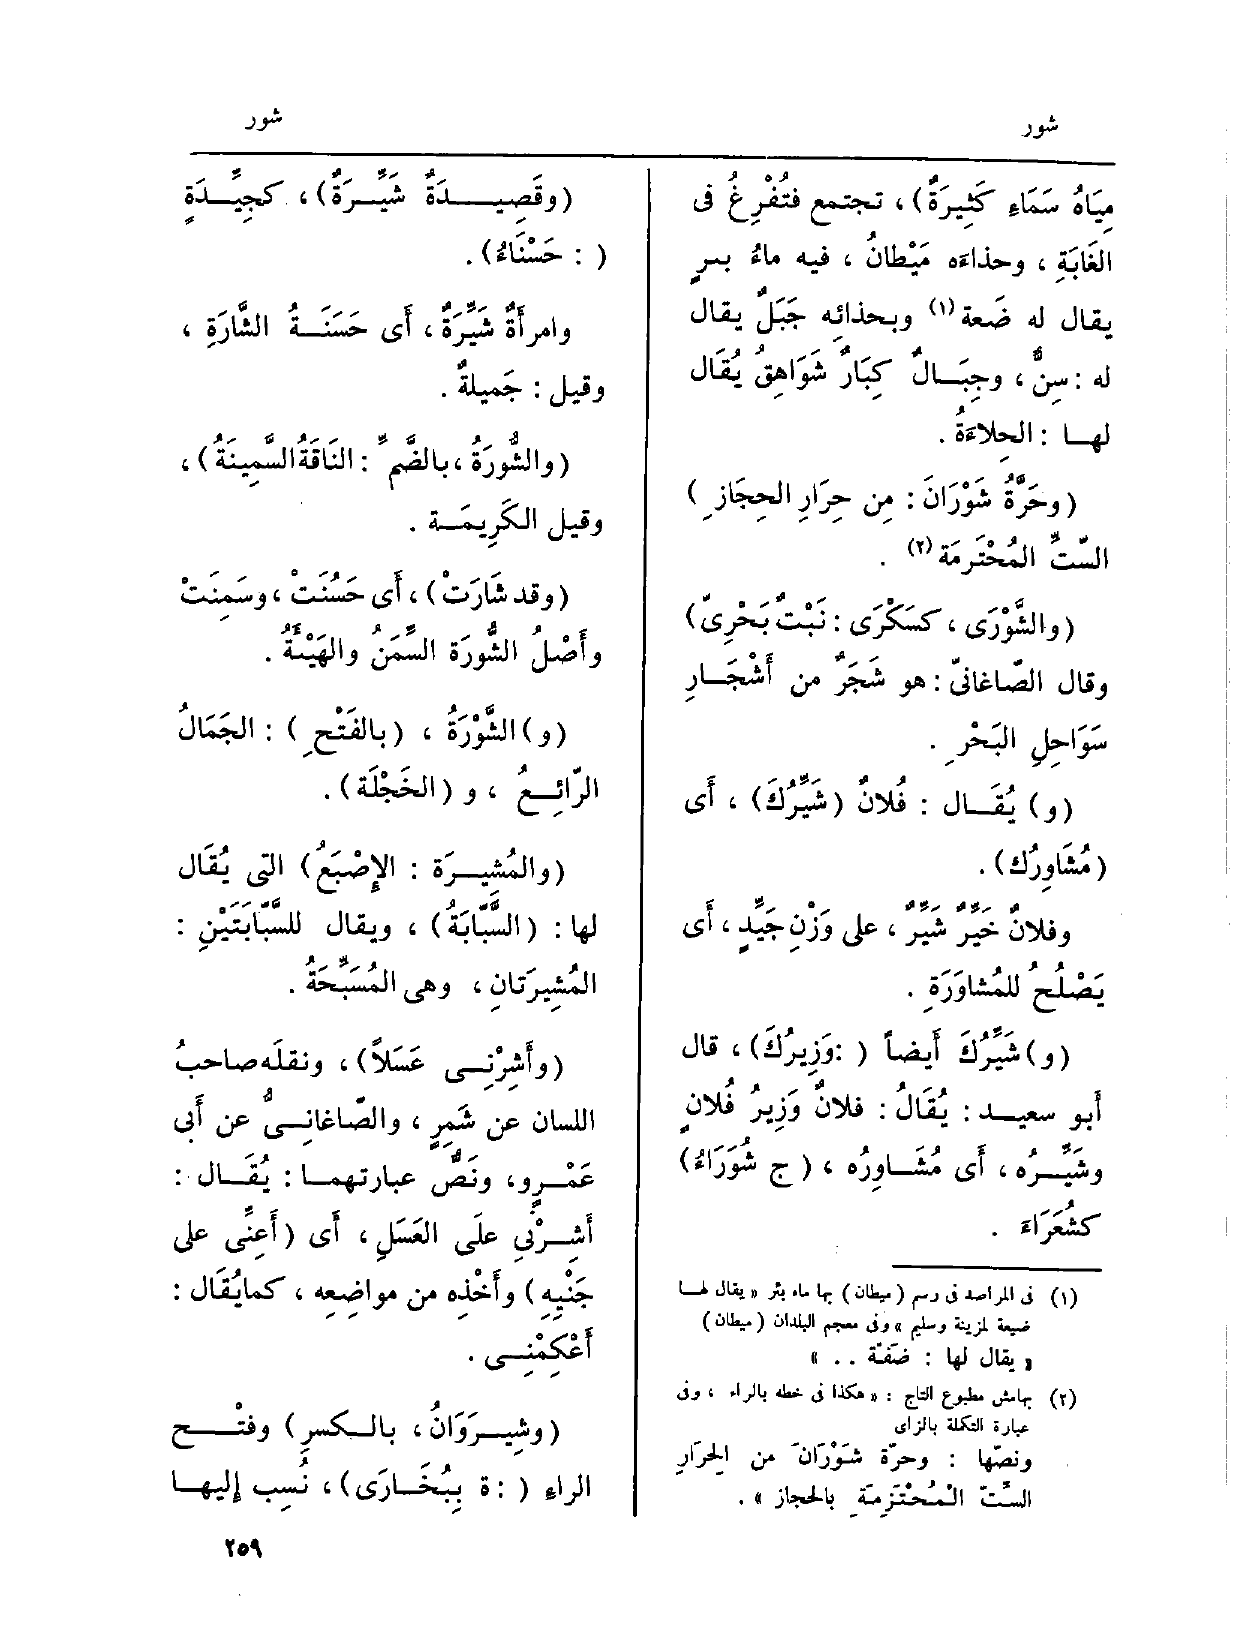 شور
شور
مِيَاهُ سَمَاءٍ كَثِيرَةٌ) ، تجتمع فتُفْرِغُ فى
الغَابَةِ ، وحذاءَه مَيْطانُ ، فيه ماءُ بـرٍ
يقال له ضَعة (١) وبحذائه جَبَلٌ يقال
له : سِنٌّ ، وجِبَـالٌ كِبَارٌ شَوَاهِقُ يُقَال
لهـا : الحِلاءَةُ .
(وحَرَّةُ شَوْرَانَ : مِن حِرَارِ الحِجَازِ )
السِّتِّ المُحْتَرِمَة (٢) .
(والشَّوْرَى ، كسَكْرَى : نَبْتٌ بَحْرِىّ)
وقال الصّاغانىّ : هو شَجَرٌ من أَشْجَـارِ
سَوَاحِلِ البَحْرِ .
(و) يُقَـال : فُلانٌ (شَيِّرُكَ) ، أَى
(مُشَاوِرُكَ) .
وفلانٌ خَيِّرٌ شَيِّرٌ ، على وَزْنِ جَيِّدٍ ، أَى
يَصْلُحُ للمُشاوَرَةِ .
(و) شَيِّرُكَ أَيضاً ( : وَزِيرُكَ) ، قال
أَبو سعيـد : يُقَالُ : فلانٌ وَزِيرُ فُلانٍ
وشَيِّـرُه ، أَى مُشَـاوِرُه ، ( ج شُوَرَاءُ)
كشُعَرَاءَ .
(١) فى المراصد فى رسم (ميطان) بها ماء بئر « يقال لهـا
ضيعة لمزينة وسليم » وفى معجم البلدان (ميطان)
« يقال لها : ضَفّة . . »
(٢) بهامش مطبوع التاج : « هكذا فى خطه بالراء ، وفى
عبارة التكملة بالزاى
ونصّها : وحرّة شَوْرَانَ من الحِرَارِ
السِّتّ المُحْتَزِمَةِ بالحجاز » .
(وقَصِيـدَةٌ شَيِّـرَةٌ) ، كجَيِّـدَةٍ
( : حَسْنَاءُ) .
وامرأَةٌ شَيِّرَةٌ ، أَى حَسَنَـةُ الشَّارَةِ ،
وقيل : جَميلةٌ .
(والشُّورَةُ ، بالضَّمّ : النَاقَةُ السَّمِينَةُ) ،
وقيل الكَرِيمَـة .
(وقد شَارَتْ) ، أَى حَسُنَتْ ، وسَمِنَتْ
وأَصْلُ الشُّورَة السِّمَنُ والهَيْئَةُ .
(و) الشَّوْرَةُ ، (بالفَتْحِ ) : الجَمَالُ
الرّائِـعُ ، و (الخَجْلَة) .
(والمُشِيـرَة : الإِصْبَعُ) التى يُقَال
لها : (السَّبّابَةُ) ، ويقال للسَّبّابَتَيْنِ :
المُشِيرَتانِ ، وهى المُسَبِّحَةُ .
(وأَشِرْنِـى عَسَلاً) ، ونقلَه صاحبُ
اللسان عن شَمِرٍ ، والصّاغانِـىُّ عن أَبى
عَمْـرٍو ، ونَصُّ عبارتهمـا : يُقَـال :
أَشِـرْنِى علَى العَسَلِ ، أَى (أَعِنِّى على
جَنْيِهِ) وأَخْذِه من مواضِعِه ، كمايُقَال :
أَعْكِمْنِـى .
(وشِيـرَوَانُ ، بالـكسرِ) وفَتْـحِ
الراءِ ( : ة بِبُخَـارَى) ، نُسِب إِليهـا
٢٥٩